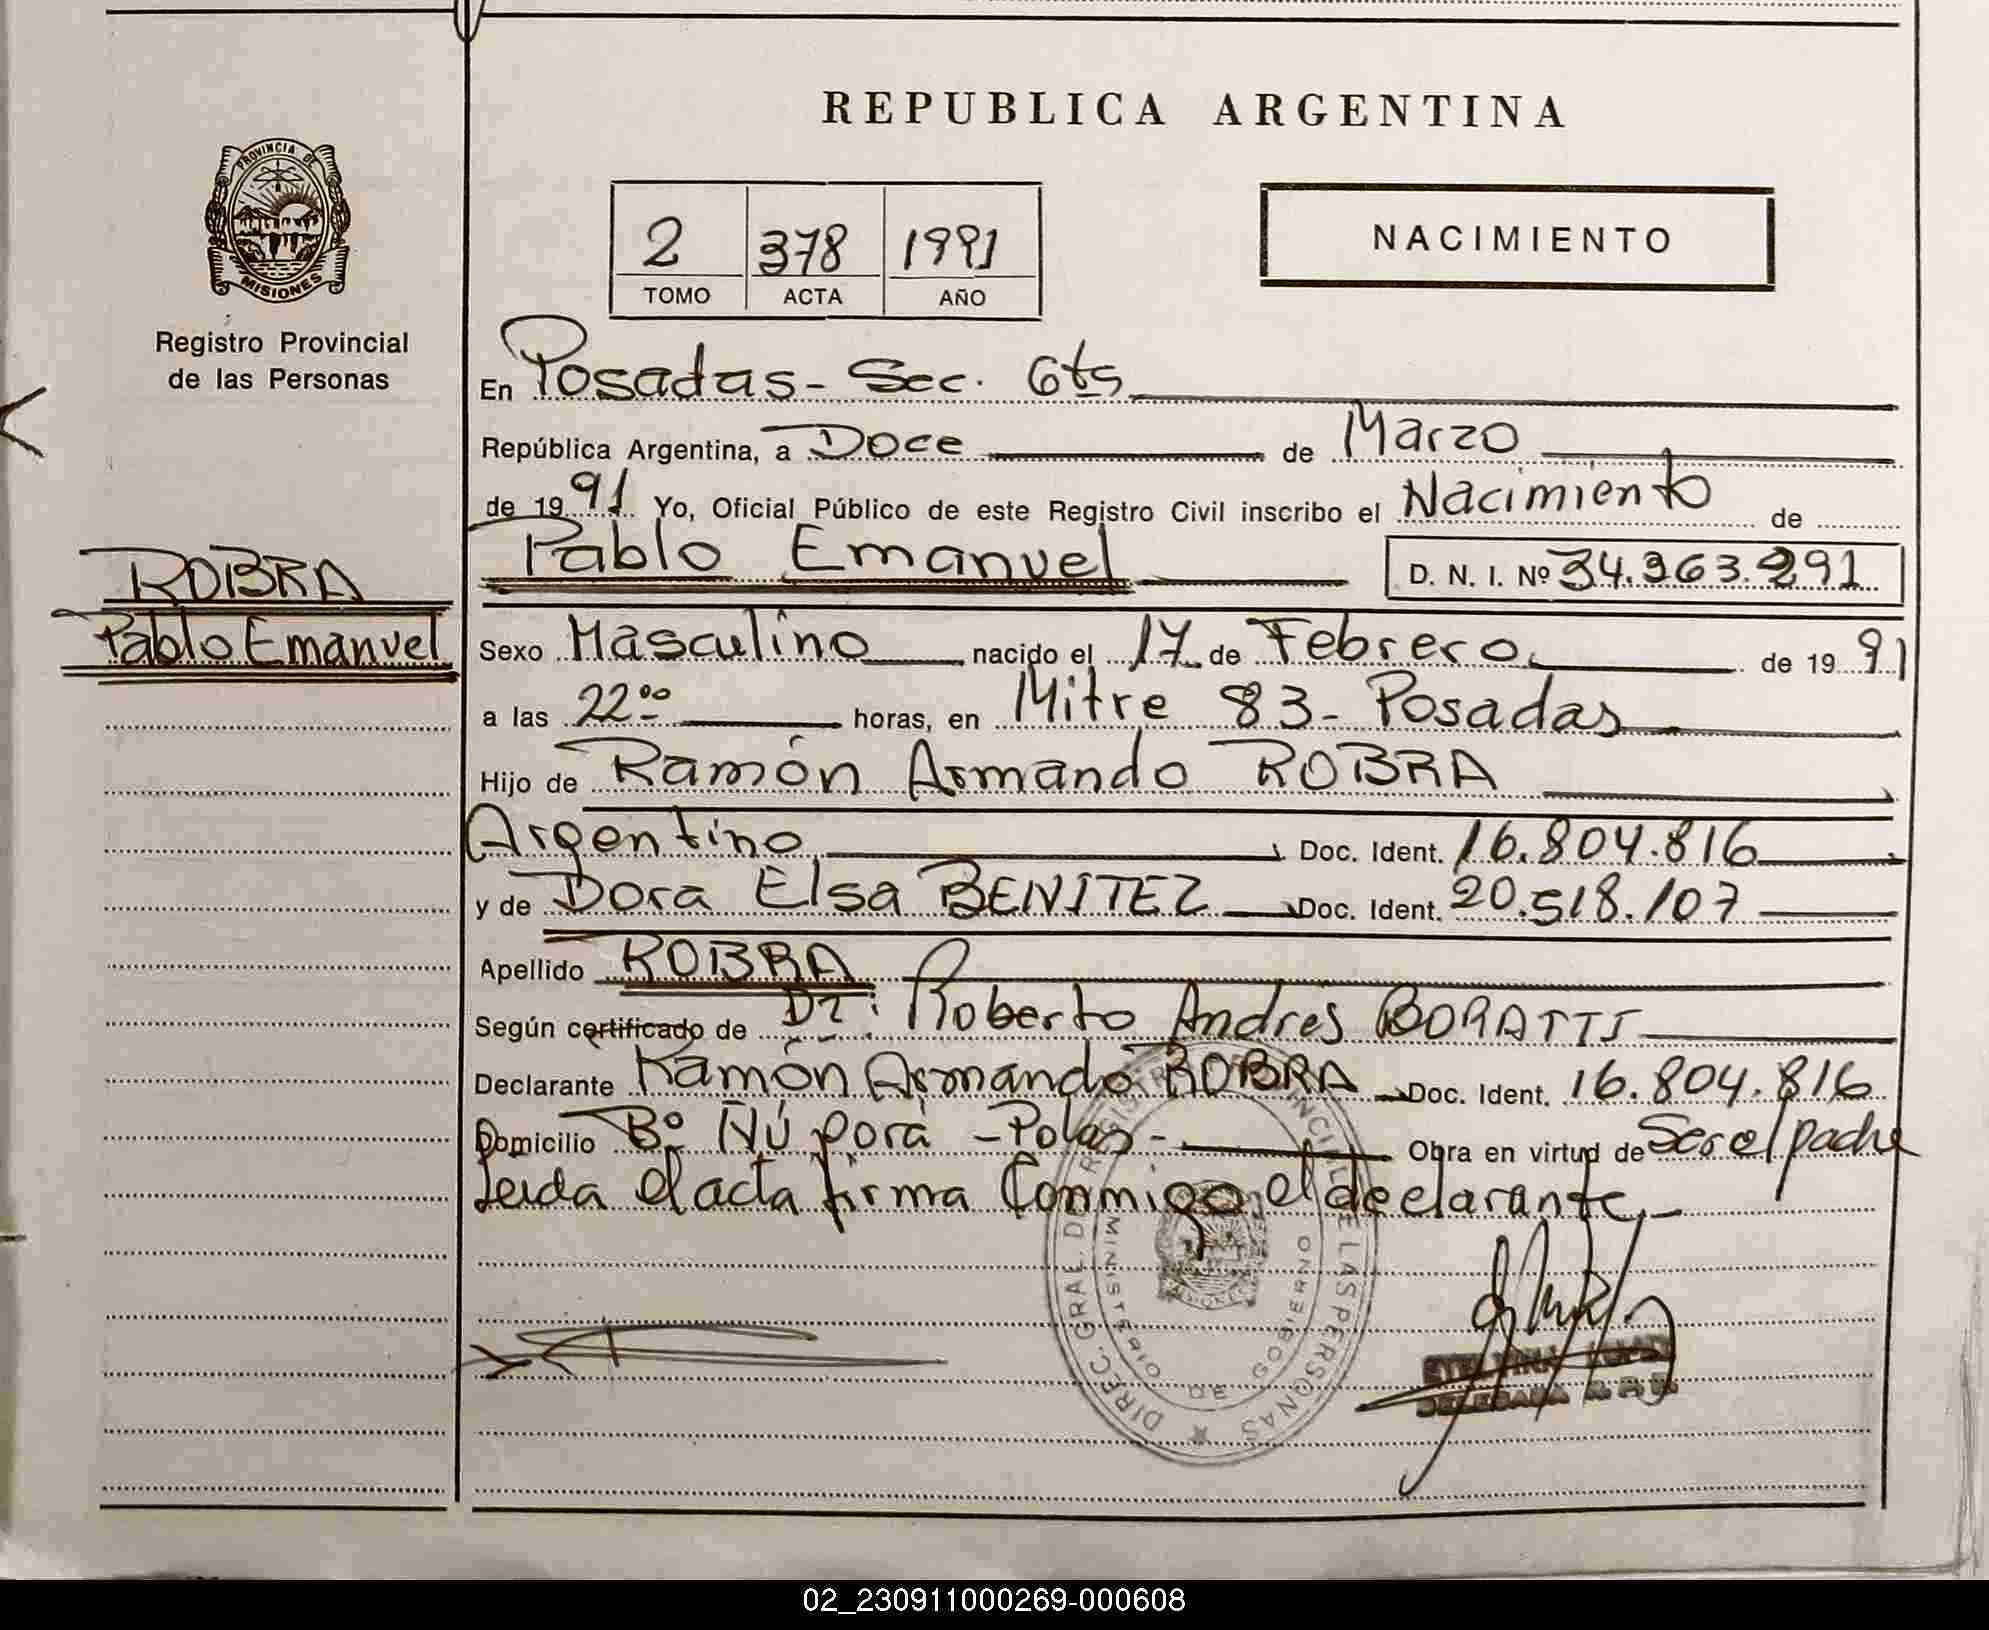 REPUBLICA ARGENTINA
PROVINCIA DE
MISIONES
Registro Provincial
de las Personas
2 378 1991
TOMO ACTA AÑO
NACIMIENTO
En Posadas - Sec. 6ts
República Argentina, a Doce de Marzo
de 1991 Yo, Oficial Público de este Registro Civil inscribo el Nacimiento de
Pablo Emanuel D. N. I. Nº 34.363.291
ROBRA
Pablo Emanuel
Sexo Masculino nacido el 17 de Febrero de 1991
a las 22ºº horas, en Mitre 83 - Posadas
Hijo de Ramón Armando ROBRA
Argentino Doc. Ident. 16.804.816
y de Dora Elsa BENITEZ Doc. Ident. 20.518.107
Apellido ROBRA
Según certificado de Dr: Roberto Andrés BORATTI
Declarante Ramón Armando ROBRA Doc. Ident. 16.804.816
Domicilio Bº Ñú porá - Pdas - Obra en virtud de Ser el padre
Leída el acta firma Conmigo el declarante. -
DIREC. GRAL. DE REGISTRO PROVINCIAL DE LAS PERSONAS
MINISTERIO DE GOBIERNO
MISIONES
DELEGADA R.P.P.
02_230911000269-000608